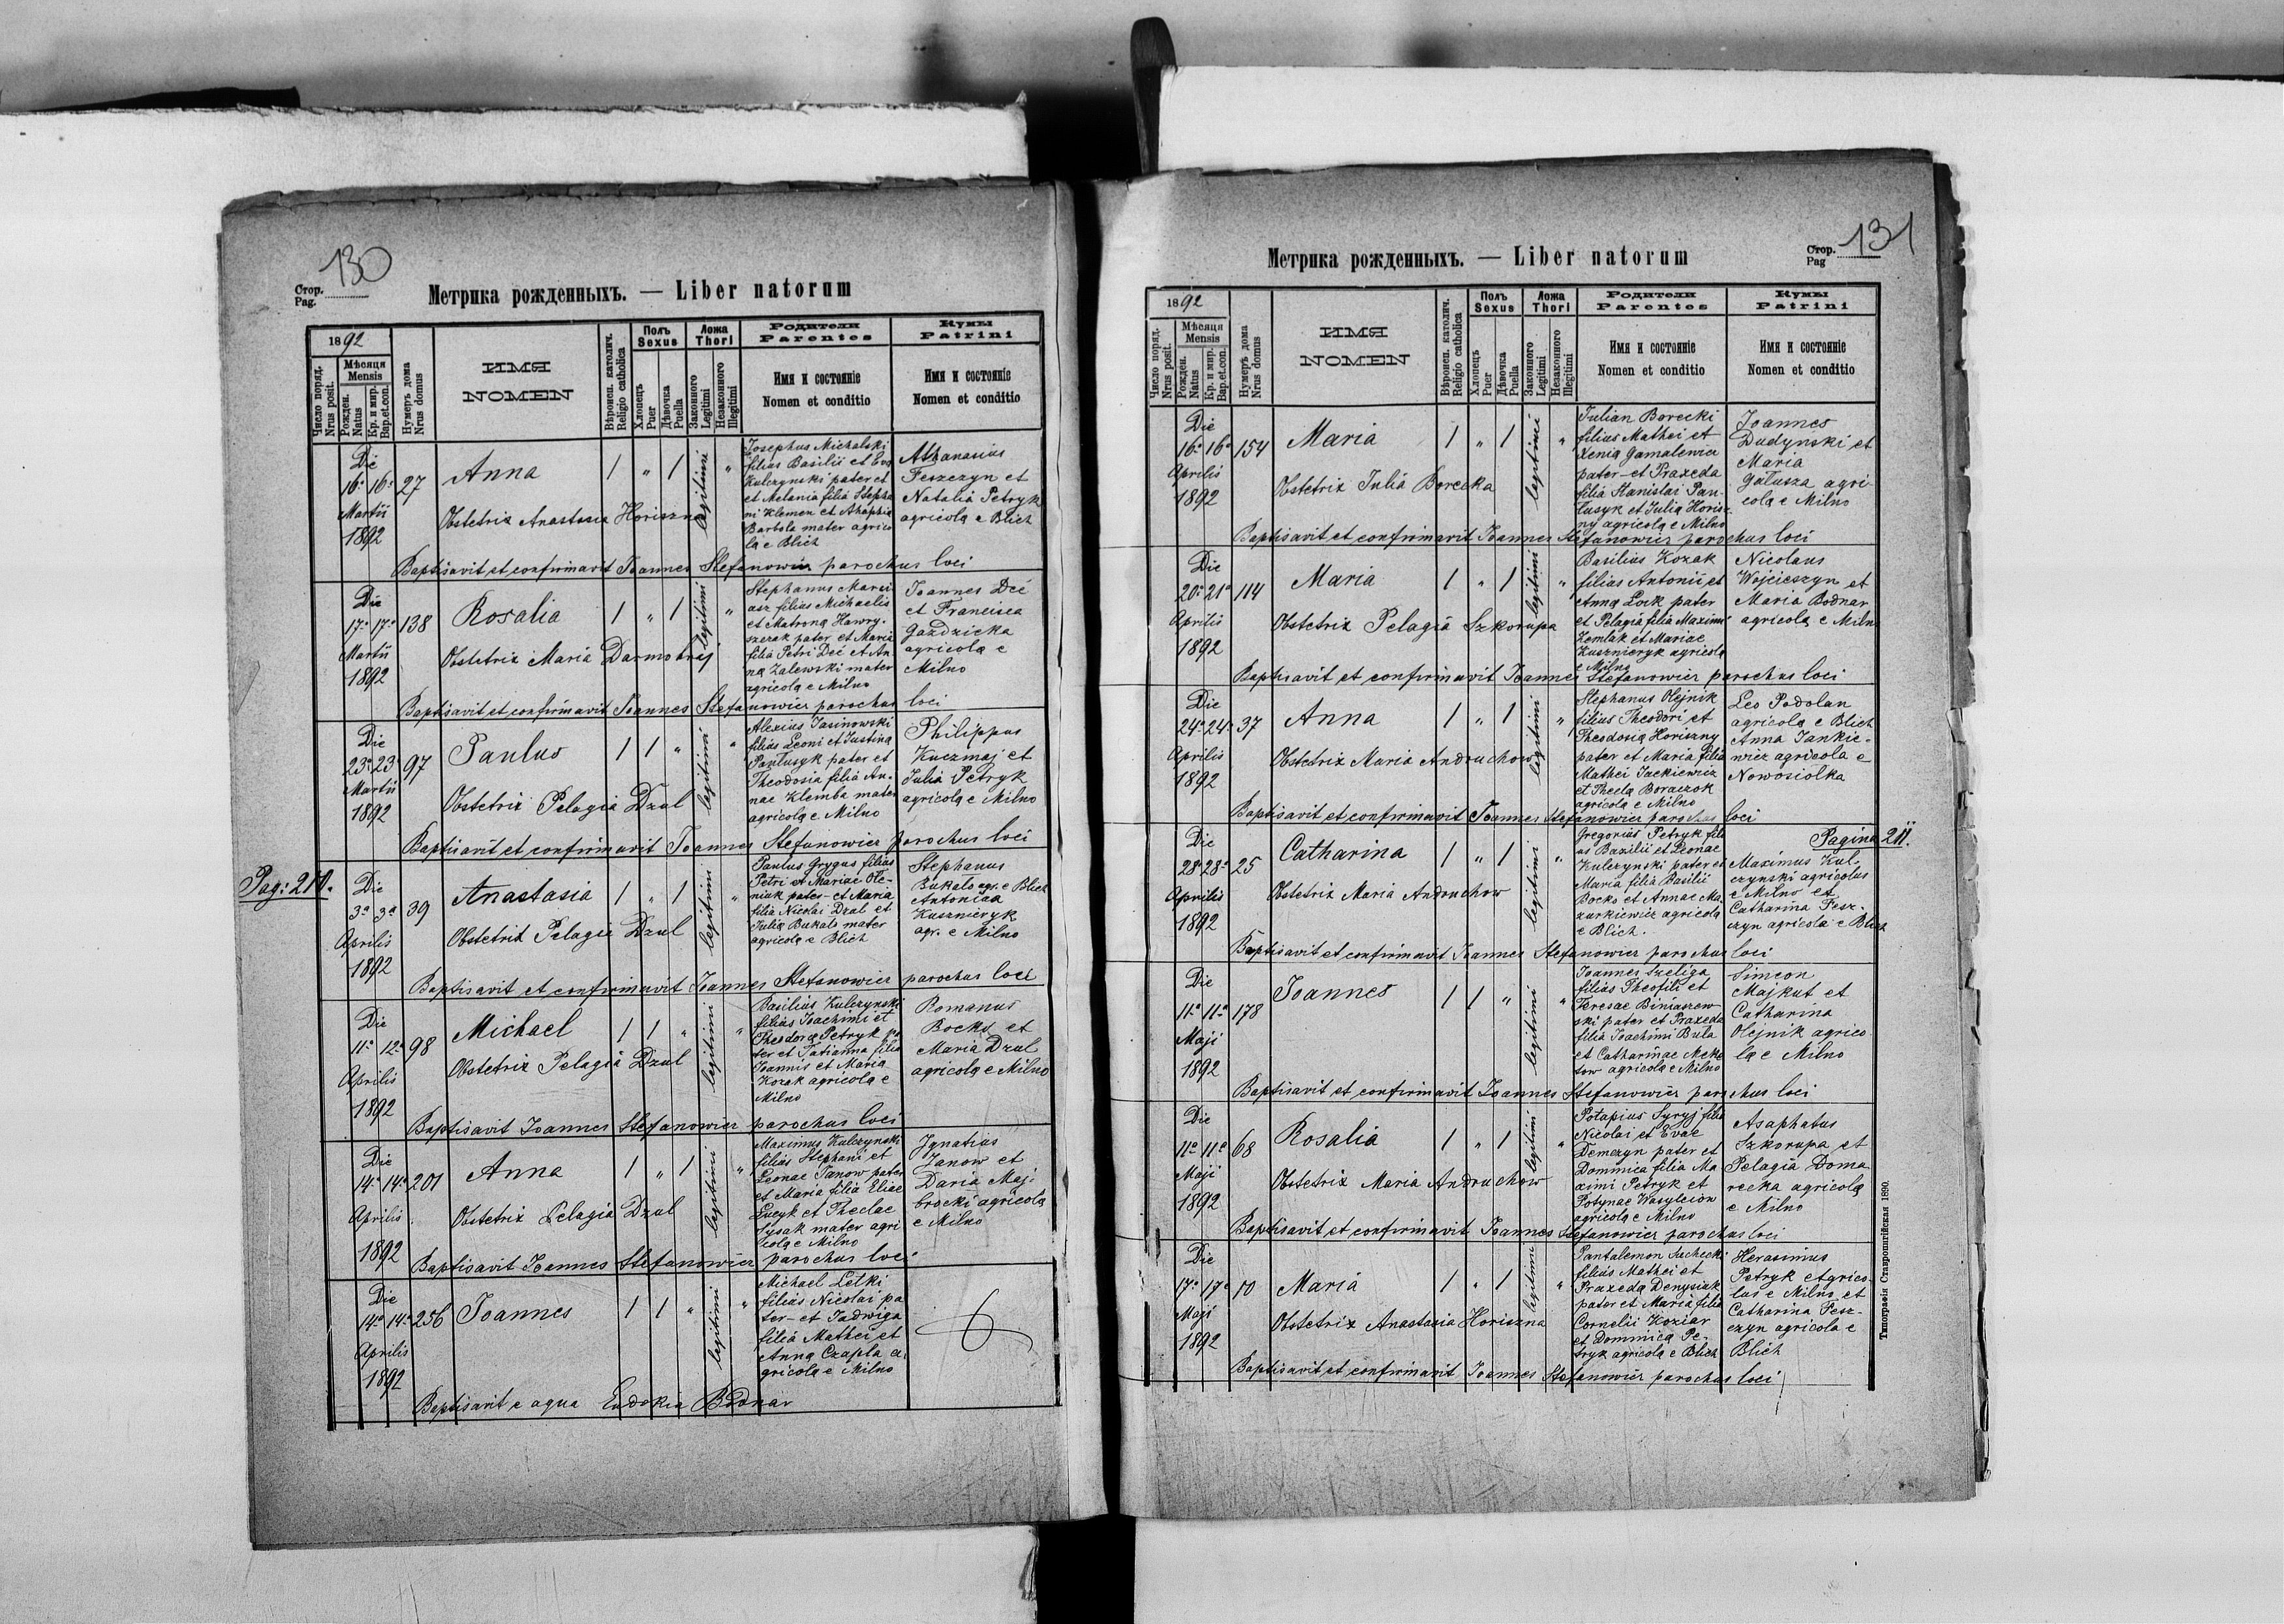 130
Стор.
Pag.
Метрика рожденныхъ. — Liber natorum
1892
Число поряд.
Nrus posit.
Мѣсяця
Mensis
Рожден.
Natus
Кр. и мир.
Bap.et.con.
Нумеръ дома
Nrus domus
ИМЯ
NOMEN
Вѣроисп. католич.
Religio catholica
Полъ
Sexus
Хлопецъ
Puer
Дѣвочка
Puella
Ложа
Thori
Законного
Legitimi
Незаконного
Illegitimi
Родители
Parentes
Имя и состоянiе
Nomen et conditio
Кумы
Patrini
Имя и состоянiе
Nomen et conditio
Die
16a 16a
Martii
1892
27
Anna
1 " 1 legitimi "
Obstetrix Anastasia Horiszna
Josephus Michalski
filius Basilii et Eva
Kulczynski pater et
et Melania filia Stepha
ni Klemen et Ahaphia
Bartola mater agrico
la e Blich
Athanasius
Feszczyn et
Natalia Petryk
agricola e Blich
Baptisavit et confirmavit Joannes Stefanowicz parochus loci
Die
17a 17a
Martii
1892
138
Rosalia
1 " 1 legitimi "
Obstetrix Maria Darmohraj
Stephanus Marci
asz filius Michaelis
et Matrona Hawry-
szczak pater et Maria
filia Petri Deć et An
na Zalewski mater
agricola e Milno
Joannes Deć
et Francisca
Gazdzicka
agricola e
Milno
Baptisavit et confirmavit Joannes Stefanowicz parochus loci
Die
23a 23a
Martii
1892
97
Paulus
1 1 " legitimi "
Obstetrix Pelagia Dzul
Alexius Jasinowski
filius Leoni et Justina
Pawlusyk pater et
Theodosia filia An-
nae Klemba mater
agricola e Milno
Philippus
Kuczmaj et
Julia Petryk
agricola e Milno
Baptisavit et confirmavit Joannes Stefanowicz parochus loci
Pag: 210.
Die
3a 3a
Aprilis
1892
39
Anastasia
1 " 1 legitimi "
Obstetrix Pelagia Dzul
Paulus Grygus filius
Petri et Mariae Ole-
niak pater et Maria
filia Nicolai Dzal et
Julia Bukato mater
agricola e Blich
Stephanus
Bukato agr. e Blich
Antonina
Kusznieryk
agr. e Milno
Baptisavit et confirmavit Joannes Stefanowicz parochus loci
Die
11a 12a
Aprilis
1892
98
Michael
1 1 " legitimi "
Obstetrix Pelagia Dzul
Basilius Kulczynski
filius Joachimi et
Theodora Petryk pa
ter et Tatianna filia
Joannis et Maria
Kozak agricola e
Milno
Romanus
Bocko et
Maria Dzul
agricola e Milno
Baptisavit Joannes Stefanowicz parochus loci
Die
14a 14a
Aprilis
1892
201
Anna
1 " 1 legitimi "
Obstetrix Pelagia Dzul
Maximus Kulczynski
filius Stephani et
Leonae Janow pater
et Maria filia Eliae
Lucyk et Theclae
Sysak mater agri
cola e Milno
Ignatius
Janow et
Daria Maj
brocki agricola
e Milno
Baptisavit Joannes Stefanowicz parochus loci
Die
14a 14a
Aprilis
1892
256
Joannes
1 1 " legitimi "
Michael Letki
filius Nicolai pa
ter et Jadwiga
filia Mathei et
Anna Czapla a
gricola e Milno
Baptisavit e aqua Eudokia Bodnar
131
Стор.
Pag
Метрика рожденныхъ. — Liber natorum
1892
Число поряд.
Nrus posit.
Мѣсяця
Mensis
Рожден.
Natus
Кр. и мир.
Bap.et.con.
Нумеръ дома
Nrus domus
ИМЯ
NOMEN
Вѣроисп. католич.
Religio catholica
Полъ
Sexus
Хлопецъ
Puer
Дѣвочка
Puella
Ложа
Thori
Законного
Legitimi
Незаконного
Illegitimi
Родители
Parentes
Имя и состоянiе
Nomen et conditio
Кумы
Patrini
Имя и состоянiе
Nomen et conditio
Die
16a 16a
Aprilis
1892
154
Maria
1 " 1 legitimi "
Obstetrix Julia Borecka
Julian Borecki
filius Mathei et
Xenia Gamalewicz
pater et Praxeda
filia Stanislai Paw-
lusyk et Julia Horisz
ny agricola e Milno
Joannes
Dudynski et
Maria
Galusza agri-
cola e Milno
Baptisavit et confirmavit Joannes Stefanowicz parochus loci
Die
20a 21a
Aprilis
1892
114
Maria
1 " 1 legitimi "
Obstetrix Pelagia Szkorupa
Basilius Kozak
filius Antonii et
Anna Lock pater
et Pelagia filia Maximi
Kemlak et Mariae
Kusznieryk agricola
e Milno
Nicolaus
Wojcieszyn et
Maria Bodnar
agricola e Miln
Baptisavit et confirmavit Joannes Stefanowicz parochus loci
Die
24a 24a
Aprilis
1892
37
Anna
1 " 1 legitimi "
Obstetrix Maria Andruchow
Stephanus Olejnik
filius Theodori et
Theodosia Horiszny
pater et Maria filia
Mathei Jackiewicz
et Thecla Boraczok
agricola e Milno
Leo Podolan
agricola e Blich
Anna Jankie-
wicz agricola e
Nowosiolka
Baptisavit et confirmavit Joannes Stefanowicz parochus loci
Pagina 211.
Die
28a 28a
Aprilis
1892
25
Catharina
1 " 1 legitimi "
Obstetrix Maria Andruchow
Gregorius Petryk fili
us Bazilii et Leonae
Kulczynski pater et
Maria filia Basilii
Bocko et Annae Ma
zurkiewicz agricola
e Blich.
Maximus Kul-
czynski agricolus
e Milno et
Catharina Fesz-
czyn agricola e Blich
Baptisavit et confirmavit Joannes Stefanowicz parochus loci
Die
11a 11a
Maji
1892
178
Joannes
1 1 " legitimi "
Joannes Szeliga
filius Theofili et
Teresae Biniaszew
ski pater et Praxeda
filia Joachimi Bula
et Catharinae Meke
tow agricola e Milno
Simeon
Majkut et
Catharina
Olejnik agrico
la e Milno
Baptisavit et confirmavit Joannes Stefanowicz parochus loci
Die
11a 11a
Maji
1892
68
Rosalia
1 " 1 legitimi "
Obstetrix Maria Andruchow
Potapius Syryj filius
Nicolai et Evae
Demczyn pater et
Dominica filia Ma
ximi Petryk et
Potynae Wasylciow
agricola e Milno
Asaphatus
Szkorupa et
Pelagia Doma
recka agricola
e Milno
Baptisavit et confirmavit Joannes Stefanowicz parochus loci
Die
17a 17a
Maji
1892
10
Maria
1 " 1 legitimi "
Obstetrix Anastasia Horiszna
Pantalemon Suchecki
filius Mathei et
Praxeda Denysiak
pater et Maria filia
Cornelii Koziar
et Dominica Pe-
tryk agricola e Blich
Herasimus
Petryk etgrico-
lus e Milno et
Catharina Fesz-
czyn agricola e
Blich
Baptisavit et confirmavit Joannes Stefanowicz parochus loci
Типографія Ставропигійская 1890.